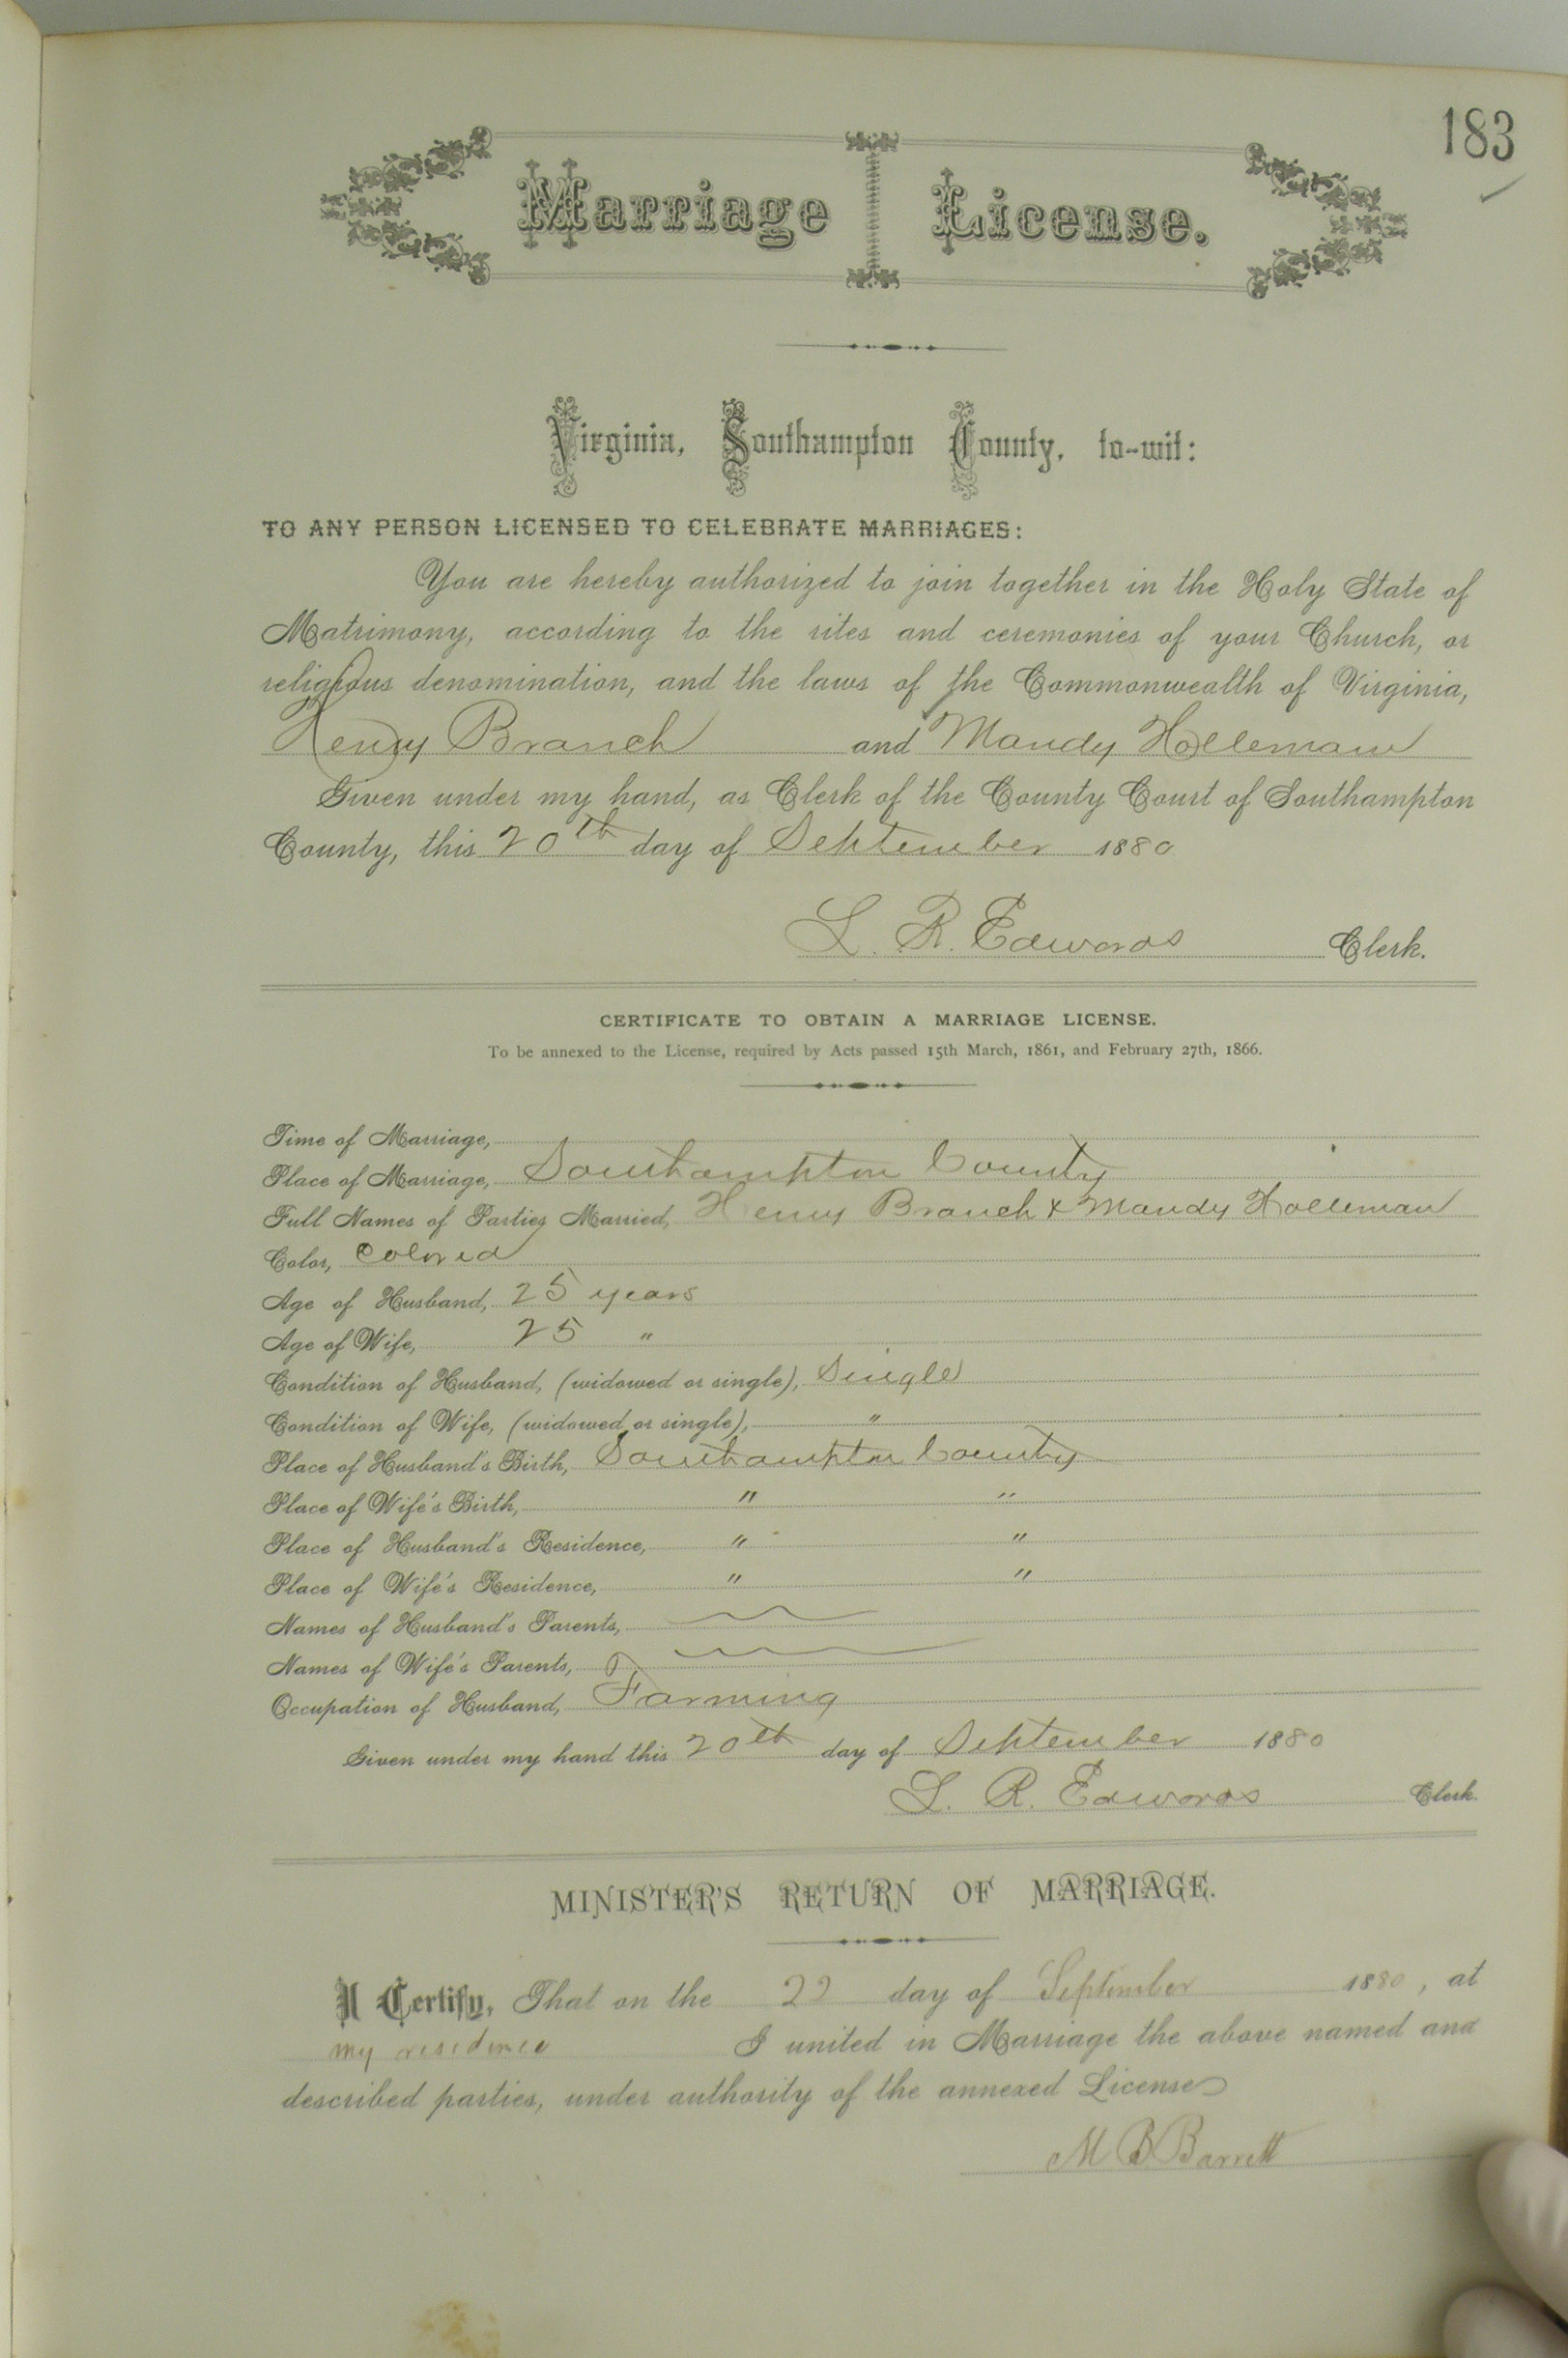 183
Marriage License.
Virginia, Southampton County, to-wit:
TO ANY PERSON LICENSED TO CELEBRATE MARRIAGES:
You are hereby authorized to join together in the Holy State of
Matrimony, according to the rites and ceremonies of your Church, or
religious denomination, and the laws of the Commonwealth of Virginia,
Henry Branch and Mandy Holleman
Given under my hand, as Clerk of the County Court of Southampton
County, this 20th day of September 1880
L. R. Edwards Clerk.
CERTIFICATE TO OBTAIN A MARRIAGE LICENSE.
To be annexed to the License, required by Acts passed 15th March, 1861, and February 27th, 1866.
Time of Marriage,
Place of Marriage, Southampton County
Full Names of Parties Married, Henry Branch & Mandy Holleman
Color, Colored
Age of Husband, 25 years
Age of Wife, 25 "
Condition of Husband, (widowed or single), Single
Condition of Wife, (widowed or single), "
Place of Husband's Birth, Southampton County
Place of Wife's Birth, " "
Place of Husband's Residence, " "
Place of Wife's Residence, " "
Names of Husband's Parents,
Names of Wife's Parents,
Occupation of Husband, Farming
Given under my hand this 20th day of September 1880
L. R. Edwards Clerk.
MINISTER'S RETURN OF MARRIAGE.
I Certify, That on the 22 day of September 1880, at
my residence I united in Marriage the above named and
described parties, under authority of the annexed License
M B Barrett